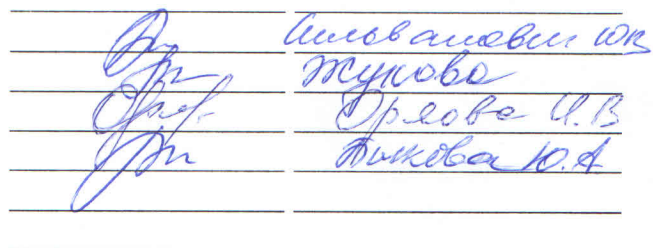 Сильванович ЮВ
Жукова
Орлова И.В
Быкова Ю.А